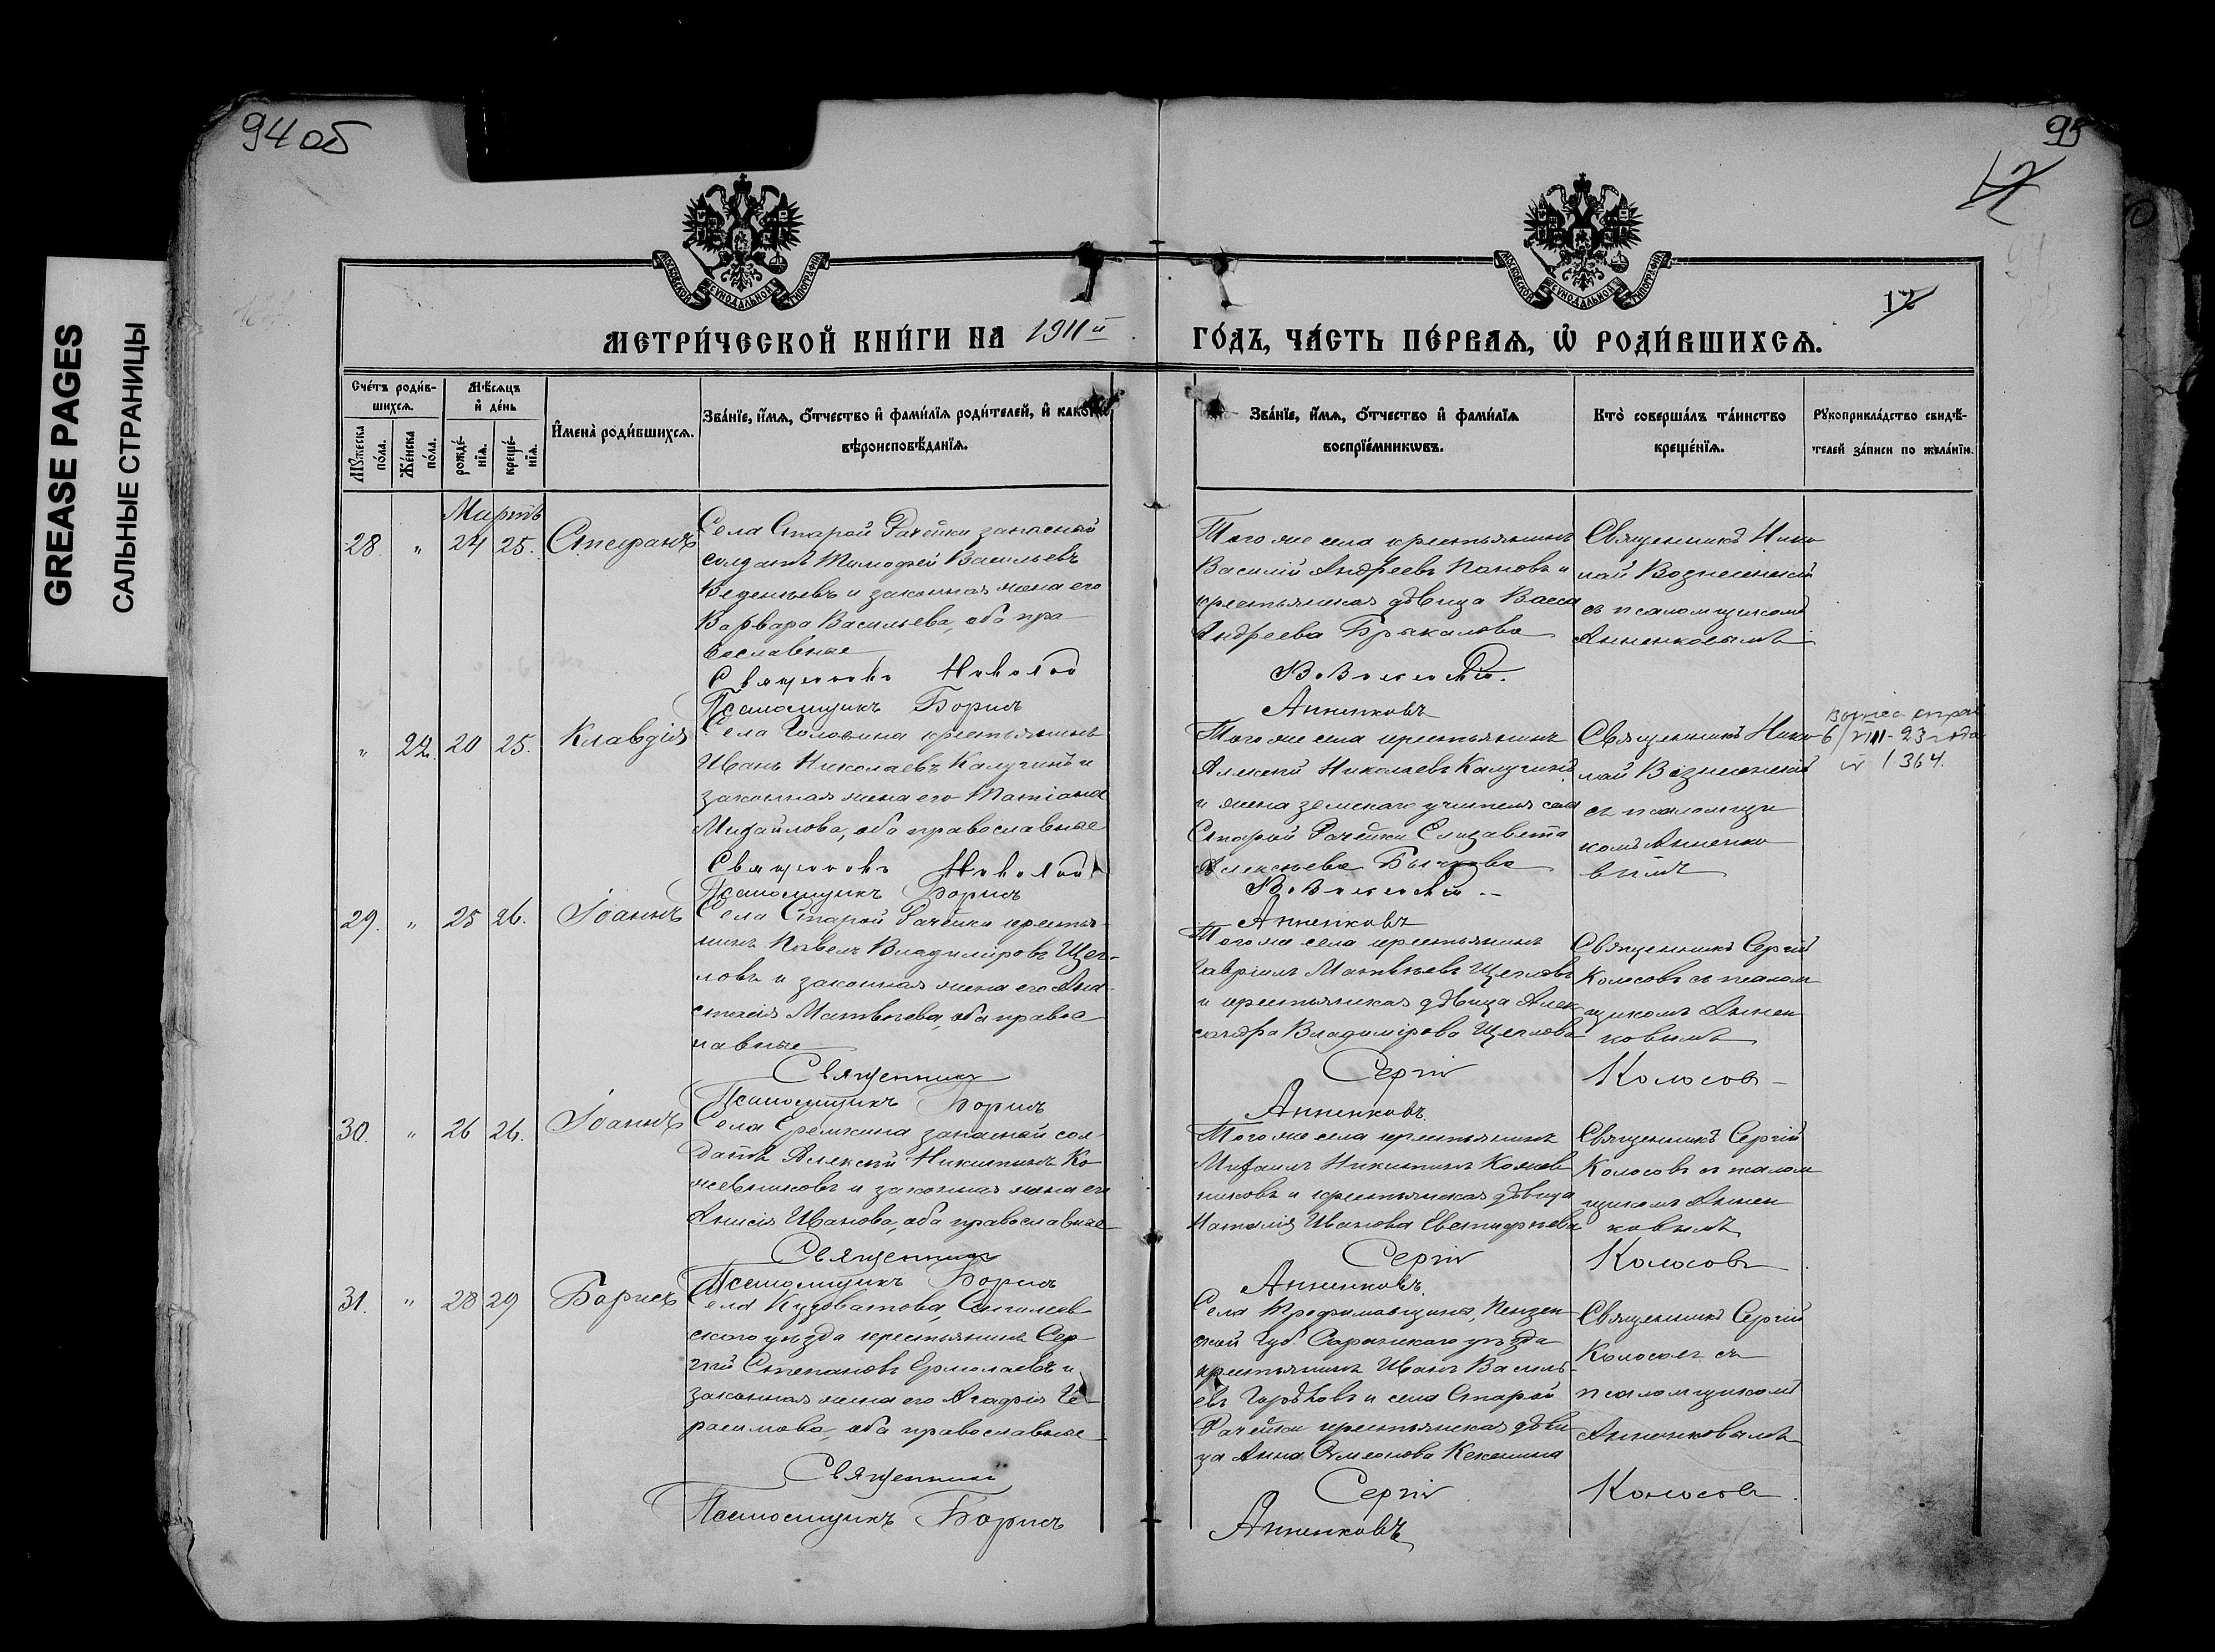 94 об
95
12
GREASE PAGES
САЛЬНЫЕ СТРАНИЦЫ
МОСКОВСКОЙ СѴНОДАЛЬНОЙ ТИПОГРАФІИ
МОСКОВСКОЙ СѴНОДАЛЬНОЙ ТИПОГРАФІИ
12
МЕТРИ́ЧЕСКОЙ КНИ́ГИ НА 1911й
ГО́ДЪ, ЧА́СТЬ ПЕ́РВАѦ, Ѿ РОДИ́ВШИХСѦ.
Сче́тъ роди́в-
шихсѧ.
Мѣ́сѧцъ
и҆ де́нь
Мꙋ́жеска
по́ла.
Же́нска
по́ла.
рожде́-
нїѧ.
креще́-
нїѧ.
И҆мена̀ роди́вшихсѧ.
Зва́нїе, и҆́мѧ, ѻ҆́тчество и҆ фами́лїѧ роди́телей, и҆ како́гѡ
вѣроисповѣ́данїѧ.
Зва́нїе, и҆́мѧ, ѻ҆́тчество и҆ фами́лїѧ
воспрїе́мникѡвъ.
Кто̀ соверша́лъ та́инство
креще́нїѧ.
Рꙋкоприкла́дство свидѣ́-
телей за́писи по жела́нїю.
Мартъ
28. " 24 25. Стефанъ
Села Старой Рачейки запасный
солдатъ Тимофей Васильевъ
Веденѣевъ и законная жена его
Варвара Васильева, оба пра
вославные
Священникъ Николай
Псаломщикъ Борисъ
Того же села крестьянинъ
Василій Андреевъ Пановъ и
крестьянская дѣвица Васса
Андреева Брыкалова
Вознесенскій.
Анненковъ
Священникъ Нико
лай Вознесенскій
съ псаломщикомъ
Анненковымъ
" 22. 20 25. Клавдія
Села Головина крестьянинъ
Иванъ Николаевъ Калугинъ и
законная жена его Татіана
Михайлова, оба православные
Священникъ Николай
Псаломщикъ Борисъ
Того же села крестьянинъ
Алексѣй Николаевъ Калугинъ
и жена земскаго учителя села
Старой Рачейки Елизавета
Алексѣева Бычкова
Вознесенскій
Анненковъ
Священникъ Нико
лай Вознесенскій
съ псаломщи
комъ Анненко
вымъ
6/VIII-23 года
№ 1364.
29. " 25 26. Іоаннъ
Села Старой Рачейки крестья
нинъ Павелъ Владиміровъ Щег-
ловъ и законная жена его Ана-
стасія Матвѣева, оба правос
лавные
Священникъ
Псаломщикъ Борисъ
Того же села крестьянинъ
Гавріилъ Матвѣевъ Щегловъ
и крестьянская дѣвица Алек
сандра Владимірова Щеглова
Сергій
Анненковъ.
Священникъ Сергій
Колосовъ съ псалом
щикомъ Аннен
ковымъ
Колосовъ
30. " 26 26. Іоаннъ
Села Еремкина запасный сол-
датъ Алексѣй Никитинъ Ко
жевниковъ и законная жена его
Анисія Иванова, оба православные
Священникъ
Псаломщикъ Борисъ
Того же села крестьянинъ
Михаилъ Никитинъ Кожев
никовъ и крестьянская дѣвица
Наталія Иванова Евстифѣева
Сергій
Анненковъ.
Священникъ Сергій
Колосовъ съ псалом
щикомъ Аннен
ковымъ
Колосовъ
31. " 28 29 Борисъ
Села Кузоватова, Сенгилеев
скаго уѣзда крестьянинъ Сер-
гій Степановъ Ермолаевъ и
законная жена его Агафія Ге-
расимова, оба православные
Священникъ
Псаломщикъ Борисъ
Села Трофимовщины, Пензен
ской губ. Саранскаго уѣзда
крестьянинъ Иванъ Василь-
евъ и села Старой
Рачейки крестьянская дѣви
ца Анна
Сергій
Анненковъ
Священникъ Сергій
Колосовъ съ
псаломщикомъ
Анненковымъ
Колосовъ.